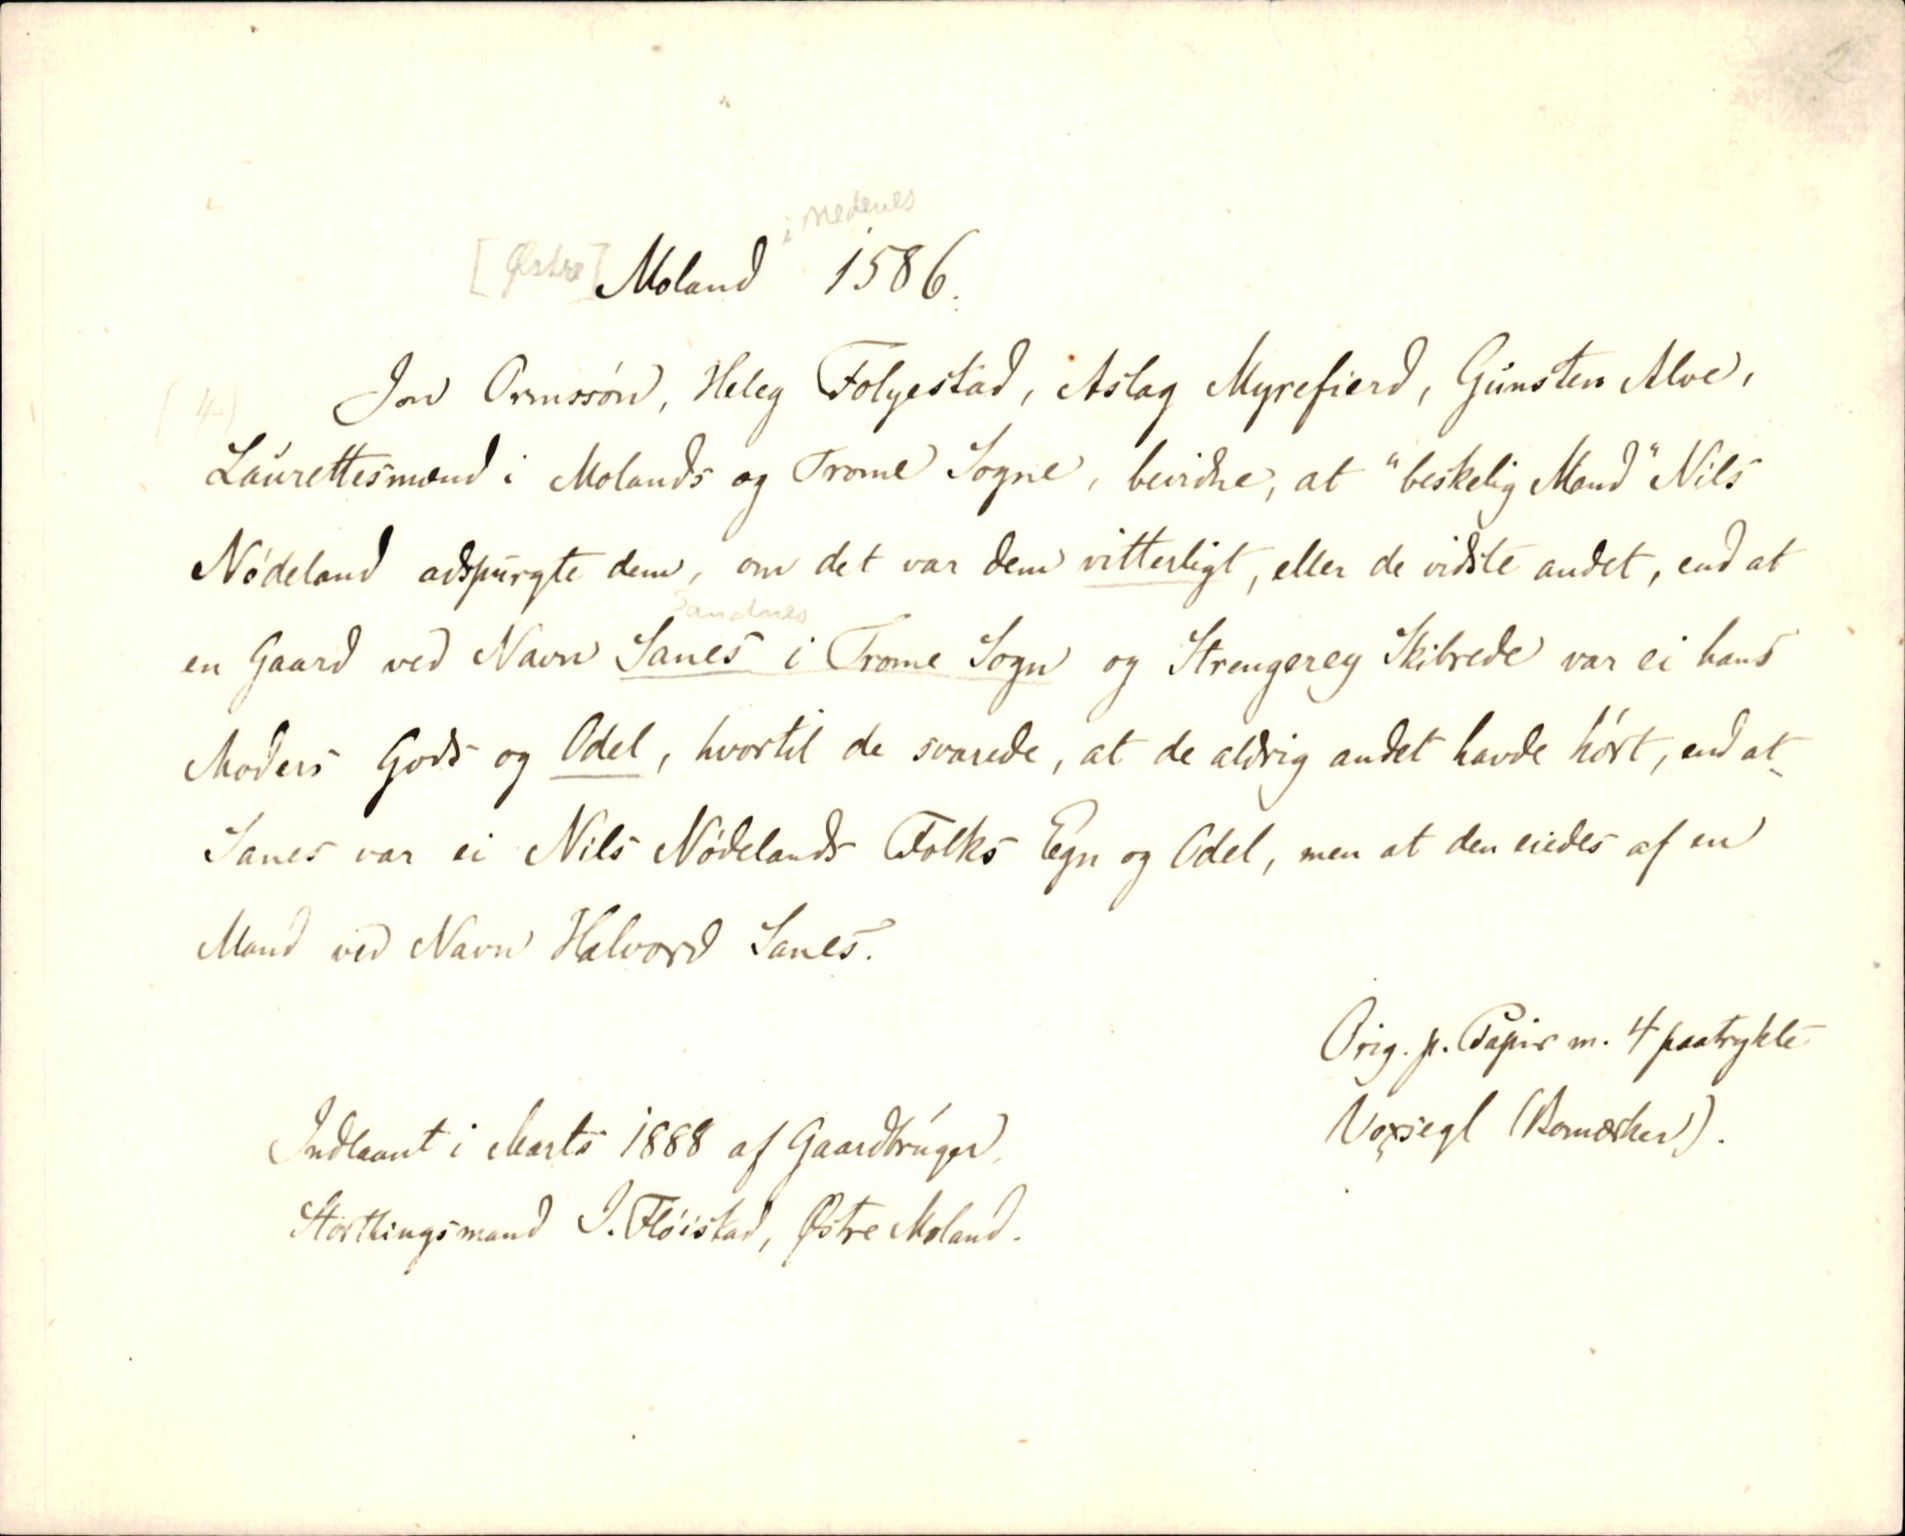 2
[Østre] Moland i Nedenes 1586.
(4) Jon Ormssön, Heleg Folyestad, Aslag Myrefierd, Gunsten Alve,
Laurettesmænd i Molands og Trome Sogne, bevidne, at "beskelig Mand" Nils
Nödeland adspurgte dem, om det var dem vitterligt, eller de vidste andet, end at
Sandnes
en Gaard ved Navn Sanes i Trome Sogn og Strengerey Skibrede var ei hans
Moders Gods og Odel, hvortil de svarede, at de aldrig andet havde hört, end at
Sanes var ei Nils Nödelands Folks Egn og Odel, men at den eiedes af en
Mand ved Navn Halvord Sanes.
Orig. p. Papir m. 4 paatrykte
Voxsegl (Bomærker).
Indlaant i Marts 1888 af Gaardbruger,
Storthingsmand J. Flöistad, Østre Moland.